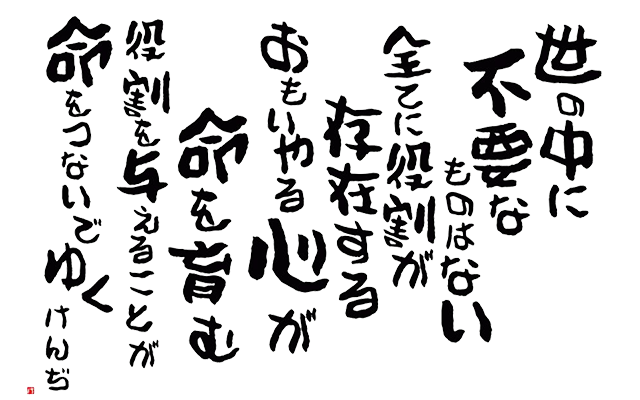 世の中に
不要な
ものはない
全てに役割が
存在する
おもいやる心が
命を育む
役割を与えることが
命をつないでゆく
けんぢ